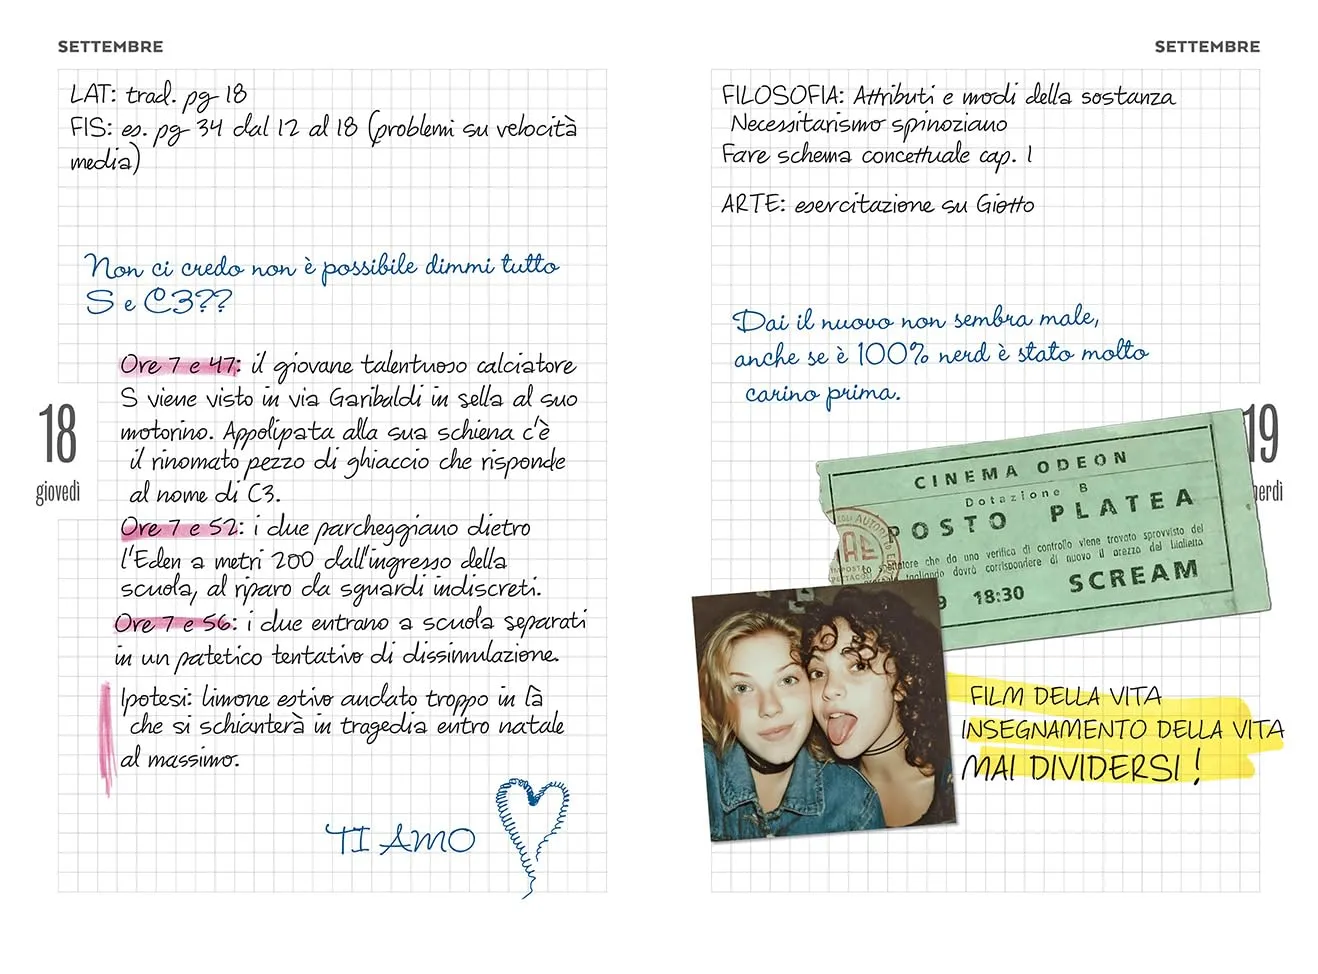 SETTEMBRE
LAT: trad. pg 18
FIS: es. pg 34 dal 12 al 18 (problemi su velocità
media)
Non ci credo non è possibile dimmi tutto
S e C3??
Ore 7 e 47: il giovane talentuoso calciatore
S viene visto in via Garibaldi in sella al suo
motorino. Appolipata alla sua schiena c'è
il rinomato pezzo di ghiaccio che risponde
al nome di C3.
Ore 7 e 52: i due parcheggiano dietro
l'Eden a metri 200 dall'ingresso della
scuola, al riparo da sguardi indiscreti.
Ore 7 e 56: i due entrano a scuola separati
in un patetico tentativo di dissimulazione.
Ipotesi: limone estivo andato troppo in là
che si schianterà in tragedia entro natale
al massimo.
TI AMO
18
giovedì
SETTEMBRE
FILOSOFIA: Attributi e modi della sostanza
Necessitarismo spinoziano
Fare schema concettuale cap. 1
ARTE: esercitazione su Giotto
Dai il nuovo non sembra male,
anche se è 100% nerd è stato molto
carino prima.
19
nerdì
CINEMA ODEON
Dotazione B
POSTO PLATEA
che da una verifica di controllo viene trovato sprovvisto del
dovrà corrispondere di nuovo il prezzo del biglietto
9 18:30 SCREAM
FILM DELLA VITA
INSEGNAMENTO DELLA VITA
MAI DIVIDERSI!